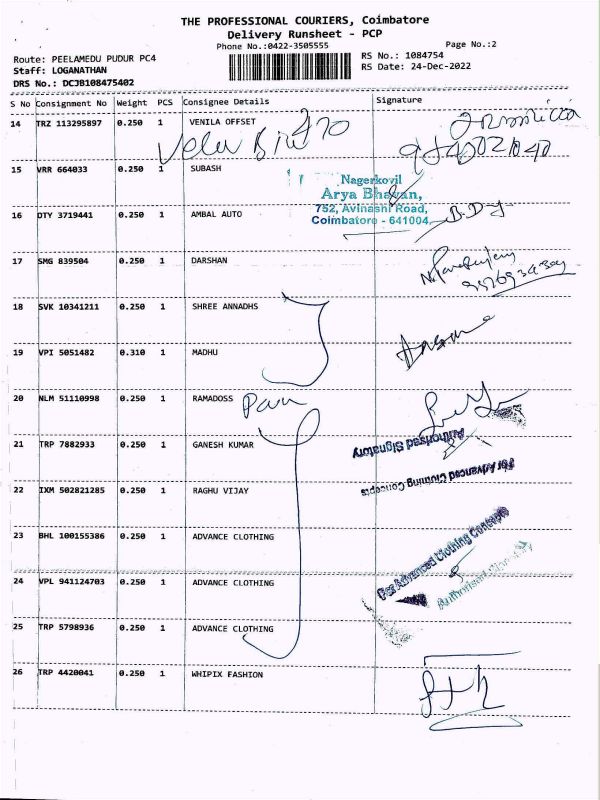 THE PROFESSIONAL COURIERS, Coimbatore
Delivery Runsheet - PCP
Phone No.:0422-3505555
Page No.:2
Route: PEELAMEDU PUDUR PC4
RS No.: 1084754
Staff: LOGANATHAN
RS Date: 24-Dec-2022
DRS No.: DCJB108475402
S No Consignment No Weight PCS Consignee Details Signature
14 TRZ 113295897 0.250 1 VENILA OFFSET
15 VRR 664033 0.250 1 SUBASH
Nagerkovil
Arya Bhavan,
752, Avinashi Road,
Coimbatore - 641004.
16 DTY 3719441 0.250 1 AMBAL AUTO
17 SMG 839504 0.250 1 DARSHAN
18 SVK 10341211 0.250 1 SHREE ANNADHS
19 VPI 5051482 0.310 1 MADHU
20 NLM 51110998 0.250 1 RAMADOSS
Authorised Signatory
21 TRP 7882933 0.250 1 GANESH KUMAR
For Advanced Clothing Concepts
22 IXM 502821285 0.250 1 RAGHU VIJAY
23 BHL 100155386 0.250 1 ADVANCE CLOTHING
For Advanced Clothing Concepts
Authorised Signatory
24 VPL 941124703 0.250 1 ADVANCE CLOTHING
25 TRP 5798936 0.250 1 ADVANCE CLOTHING
26 TRP 4420041 0.250 1 WHIPIX FASHION